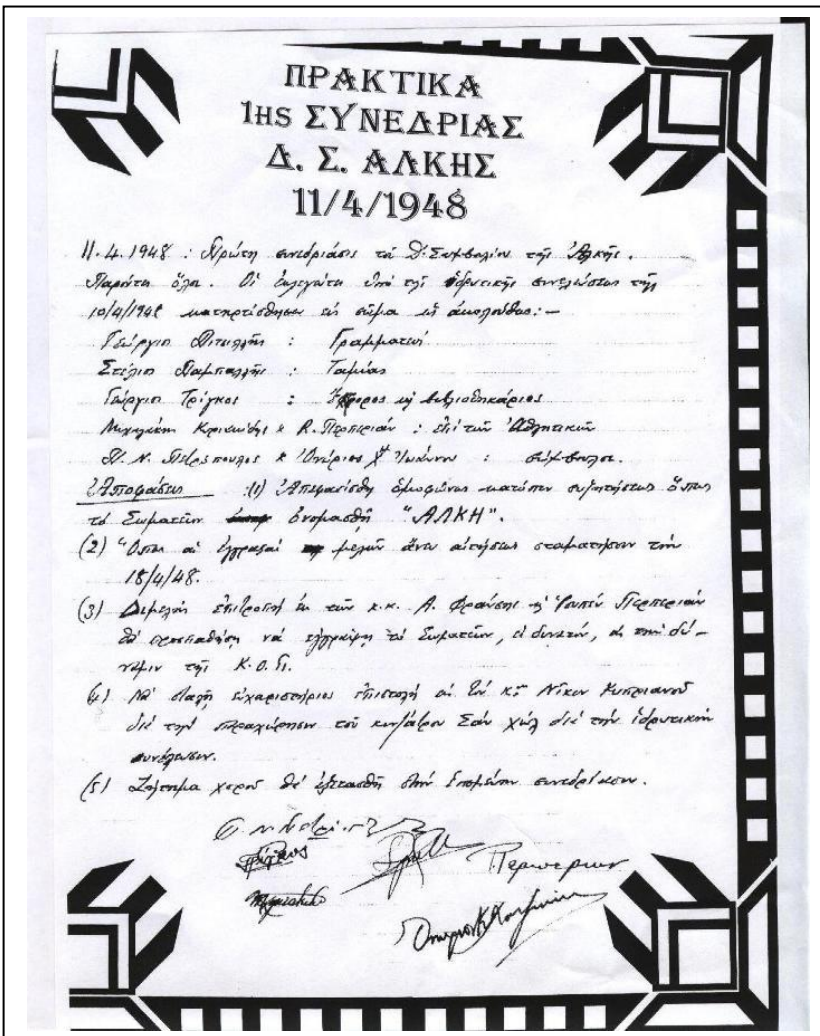 ΠΡΑΚΤΙΚΑ
1ΗΣ ΣΥΝΕΔΡΙΑΣ
Δ. Σ. ΑΛΚΗΣ
11/4/1948
11.4.1948 : Πρώτη συνεδρίασις τοῦ Δ. Συμβουλίου τῆς Ἀλκῆς.
Παρόντα ὅλοι. Οἱ ἐκλεγέντες ὑπὸ τῆς ἱδρυτικῆς συνελεύσεως τῆς
10/4/1948 κατηρτίσθησαν εἰς σῶμα ὡς ἀκολούθως:-
Γεώργιος : Γραμματεύς
Στέλιος : Ταμίας
Γεώργιος Τρίγκος : Ἔφορος καὶ βιβλιοθηκάριος
Μιχαλάκης & Κ. Περπεριάν : ἐπὶ τῶν Ἀθλητικῶν
Π. Ν. Πετρόπουλος & Ὀνούριος Χ" Ἰωάννου : σύμβουλοι.
Ἀποφάσεις :(1) Ἀπεφασίσθη ὁμοφώνως κατόπιν συζητήσεως ὅπως
τὸ Σωματεῖον ὀνομασθῇ "ΑΛΚΗ".
(2) Ὅπως αἱ ἐγγραφαὶ μελῶν ἄνευ αἰτήσεως σταματήσουν τὴν
18/4/48.
(3) Διμελὴς ἐπιτροπὴ ἐκ τῶν κ.κ. Α. Φράγκου καὶ Περπεριάν
θὰ προσπαθήσῃ νὰ ἐγγράψῃ τὸ Σωματεῖον, εἰ δυνατόν, εἰς τὴν δύ-
ναμιν τῆς Κ.Ο.Π.
(4) Νὰ σταλῇ εὐχαριστήριος ἐπιστολὴ εἰς τὸν κον Νίκον Κυπριανοῦ
διὰ τὴν παραχώρησιν τοῦ κιν/άτρου Σὰν χὼλ διὰ τὴν ἱδρυτικὴν
συνέλευσιν.
(5) Ζήτημα χοροῦ θὰ ἐξετασθῇ στὴν ἑπομένην συνεδρίασιν.
Περπεριαν